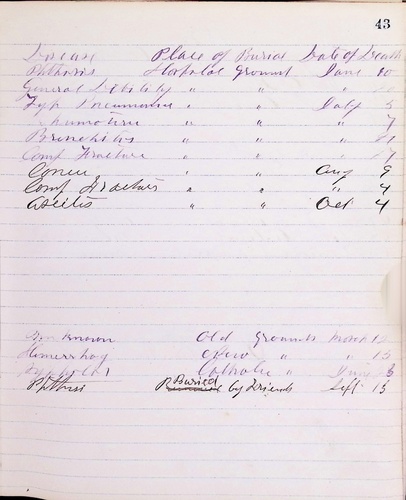 43
Disease Place of Burial Date of Death
Phthisis Hospital Ground June 10
General Debility " "
Typ Pneumonia " " July 5
" " " 7
Bronchitis " "
Comp Fracture " "
" " Aug 9
Comp Fracture " " " 4
Ascitis " " Oct 4
Unknown Old Grounds March 15
Hemorrhag New " " 15
Catholic " June 3
Phthisis Buried by Friends Sept 13